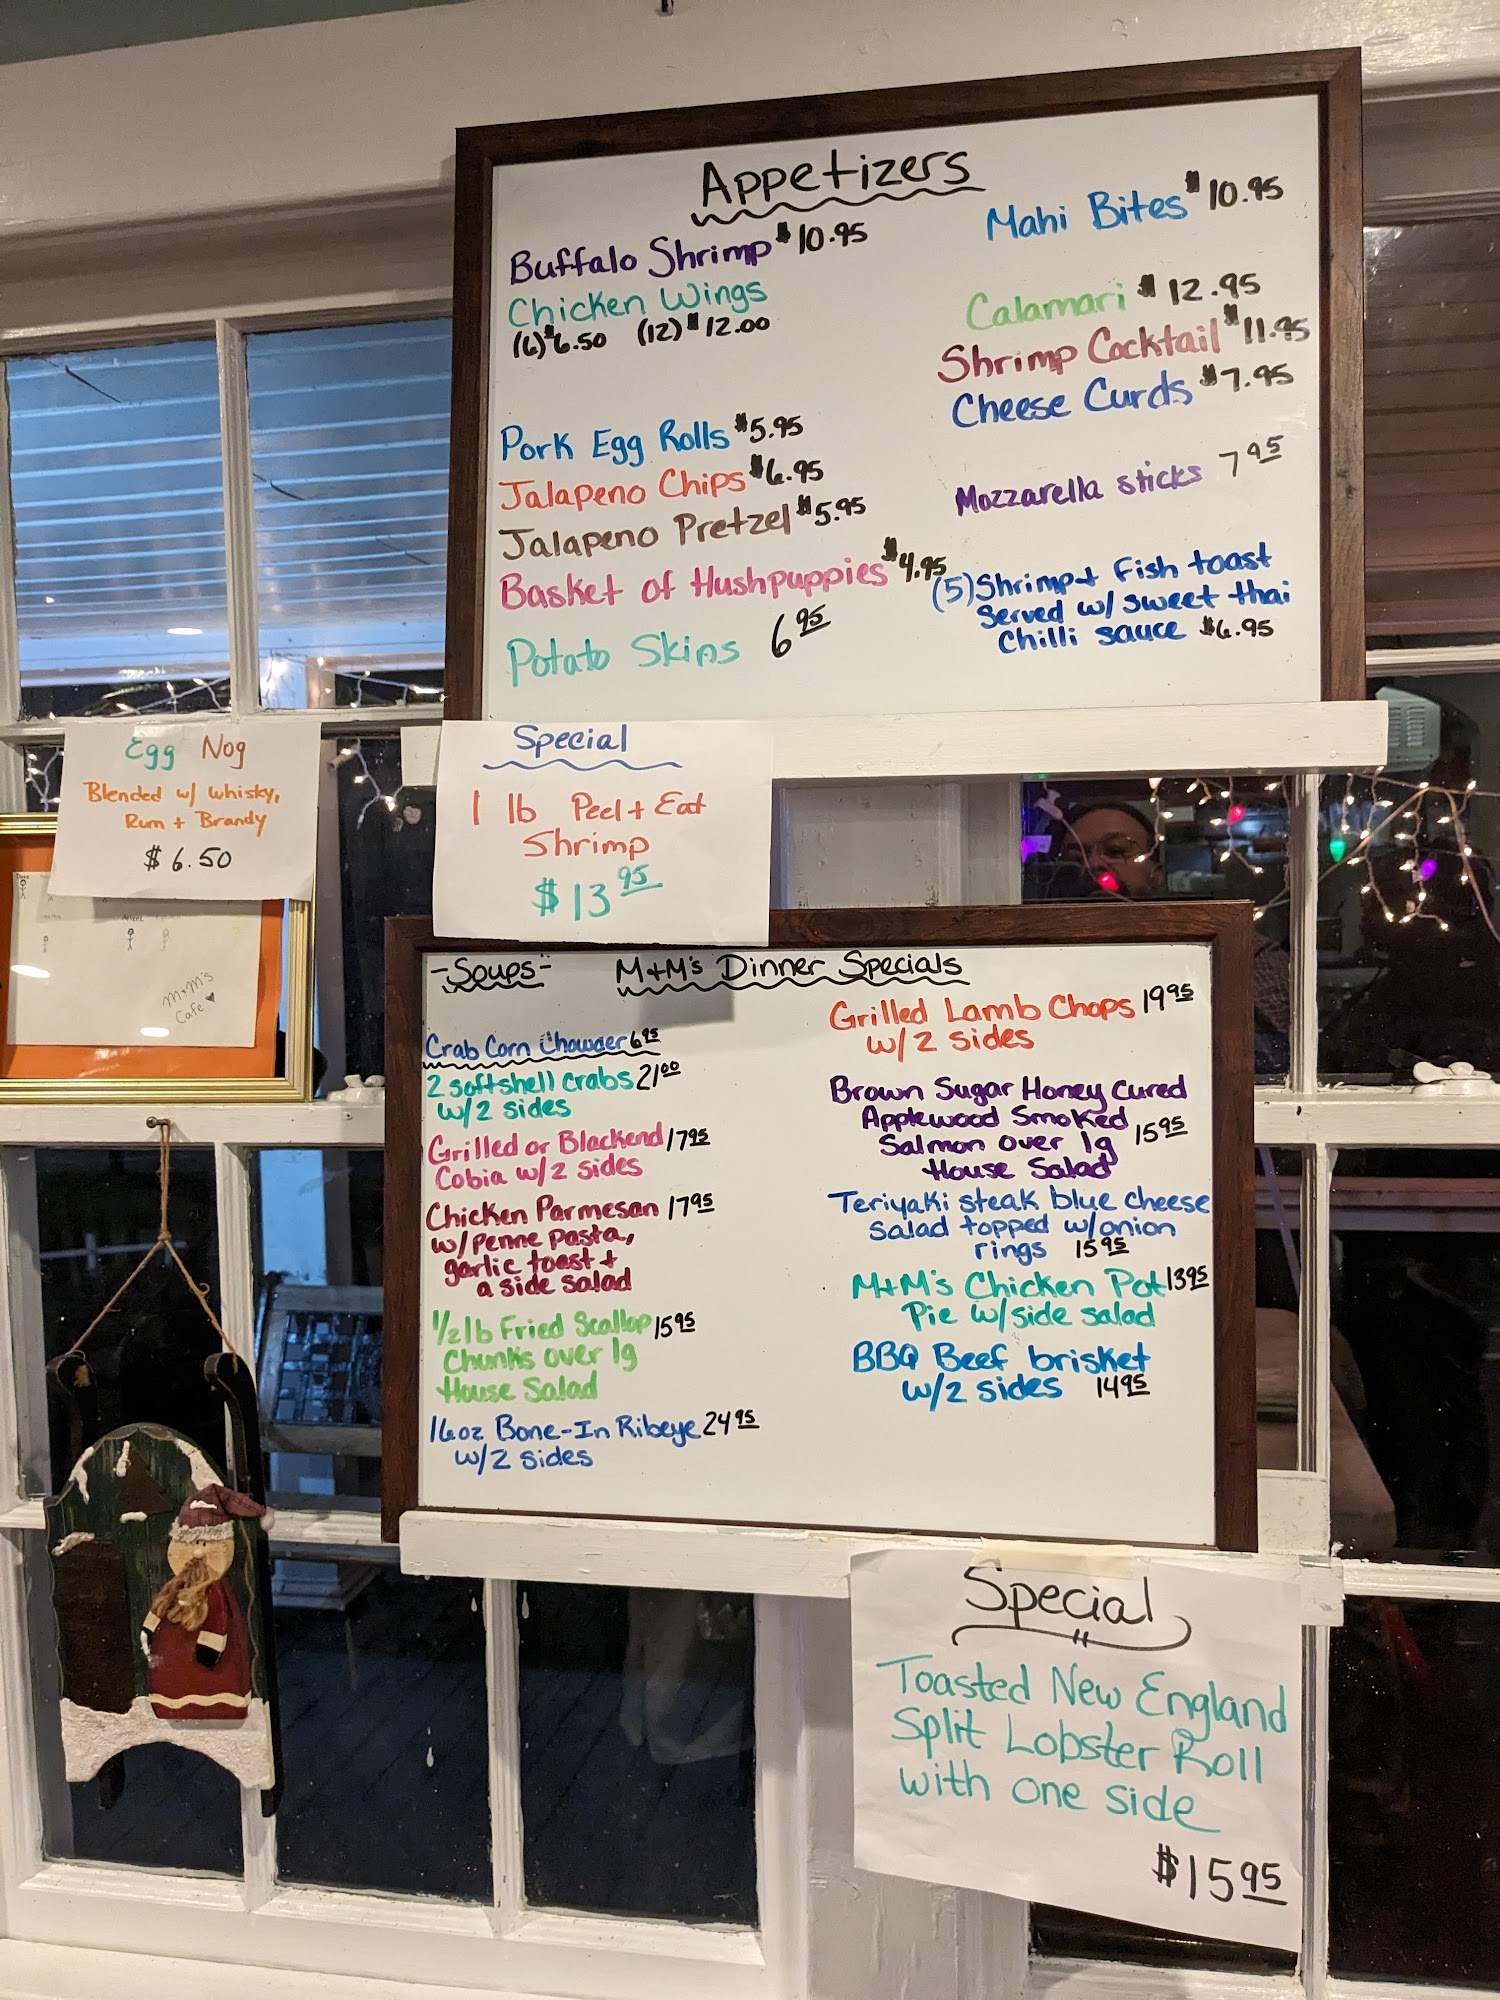 Appetizers
Buffalo Shrimp $10.95
Chicken Wings
(6) $6.50 (12) $12.00
Pork Egg Rolls $5.95
Jalapeno Chips $6.95
Jalapeno Pretzel $5.95
Basket of Hushpuppies $4.95
Potato Skins 6 95
Mahi Bites $10.95
Calamari $12.95
Shrimp Cocktail $11.95
Cheese Curds $7.95
Mozzarella sticks 7 95
(5) Shrimp + Fish toast
served w/ sweet thai
chilli sauce $6.95
Egg Nog
Blended w/ whisky,
Rum + Brandy
$6.50
M+M's
Cafe ♥
Special
1 lb Peel + Eat
Shrimp
$13 95
-Soups-
Crab Corn Chowder 6 95
M+M's Dinner Specials
2 softshell crabs 21 00
w/2 sides
Grilled or Blackend 17 95
Cobia w/2 sides
Chicken Parmesan 17 95
w/penne pasta,
garlic toast +
a side salad
1/2 lb Fried Scallop 15 95
Chunks over lg
House Salad
16oz Bone-In Ribeye 24 95
w/2 sides
Grilled Lamb Chops 19 95
w/2 sides
Brown Sugar Honey cured
Applewood Smoked
Salmon over lg 15 95
House Salad
Teriyaki steak blue cheese
salad topped w/onion
rings 15 95
M+M's Chicken Pot 13 95
Pie w/side salad
BBQ Beef brisket
w/2 sides 14 95
Special
Toasted New England
Split Lobster Roll
with one side
$15 95